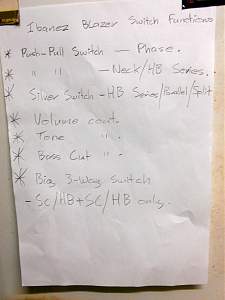 Ibanez Blazer Switch Functions
* Push-Pull Switch — Phase.
* " " — Neck/HB Series.
* Silver Switch - HB Series/Parallel/Split
* Volume cont.
* Tone " .
* Bass Cut " .
* Big 3-way switch
- SC/HB+SC/HB only.